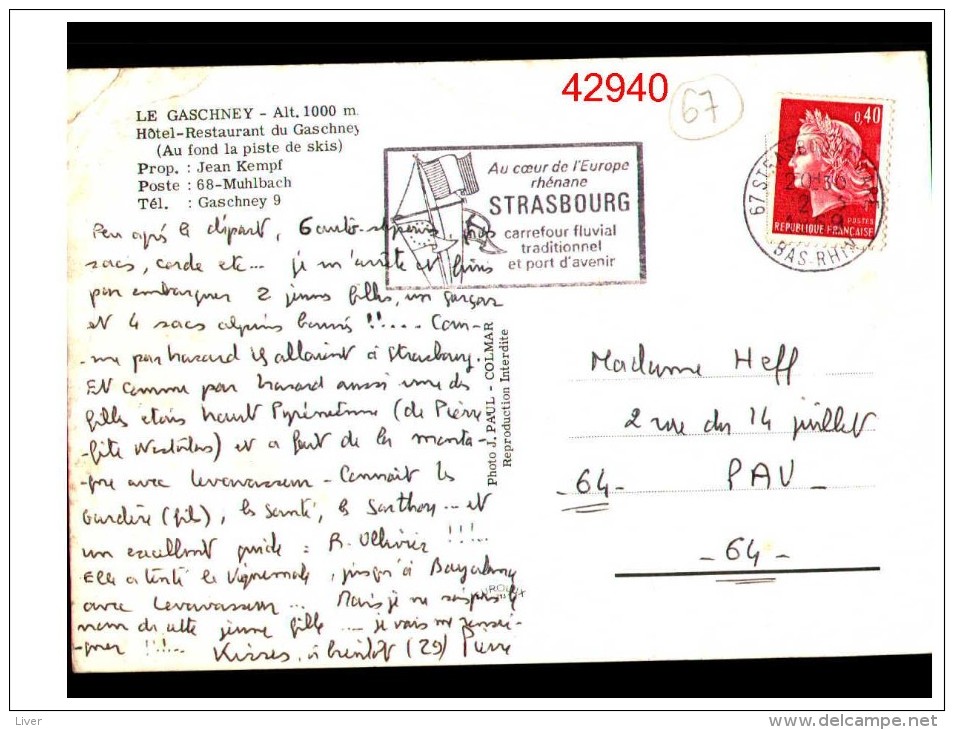 42940
67
LE GASCHNEY - Alt. 1000 m.
Hôtel-Restaurant du Gaschney
(Au fond la piste de skis)
Prop. : Jean Kempf
Poste : 68-Muhlbach
Tél. : Gaschney 9
Au cœur de l'Europe
rhénane
STRASBOURG
carrefour fluvial
traditionnel
et port d'avenir
0,40
POSTES
REPUBLIQUE FRANÇAISE
67 STRASBOURG
BAS-RHIN
Peu après le départ, 6 auto-stoppeurs, pas
sacs, corde etc... je m'arrête et finis
par embarquer 2 jeunes filles, un garçon
et 4 sacs alpins bourrés !!.... Com-
-me par hasard ils allaient à Strasbourg.
Et comme par hasard aussi une des
filles était haut Pyrénéenne (de Pierre-
-fitte Nestalas) et a fait de la monta-
-gne avec Levavasseur - Connaît les
(fils), les
un excellent guide : R. Ollivier !!!...
Elle a tenté le Vignemale, jusqu'à
avec Levavasseur... Mais je ne sais pas le
nom de cette jeune fille .... je vais me rensei-
-gner !!!... Kisses, à bientôt (29) Pierre
Photo J. PAUL - COLMAR
Reproduction Interdite
Madame Heff
2 rue du 14 juillet
-64- PAU -
-64-
Liver
www.delcampe.net